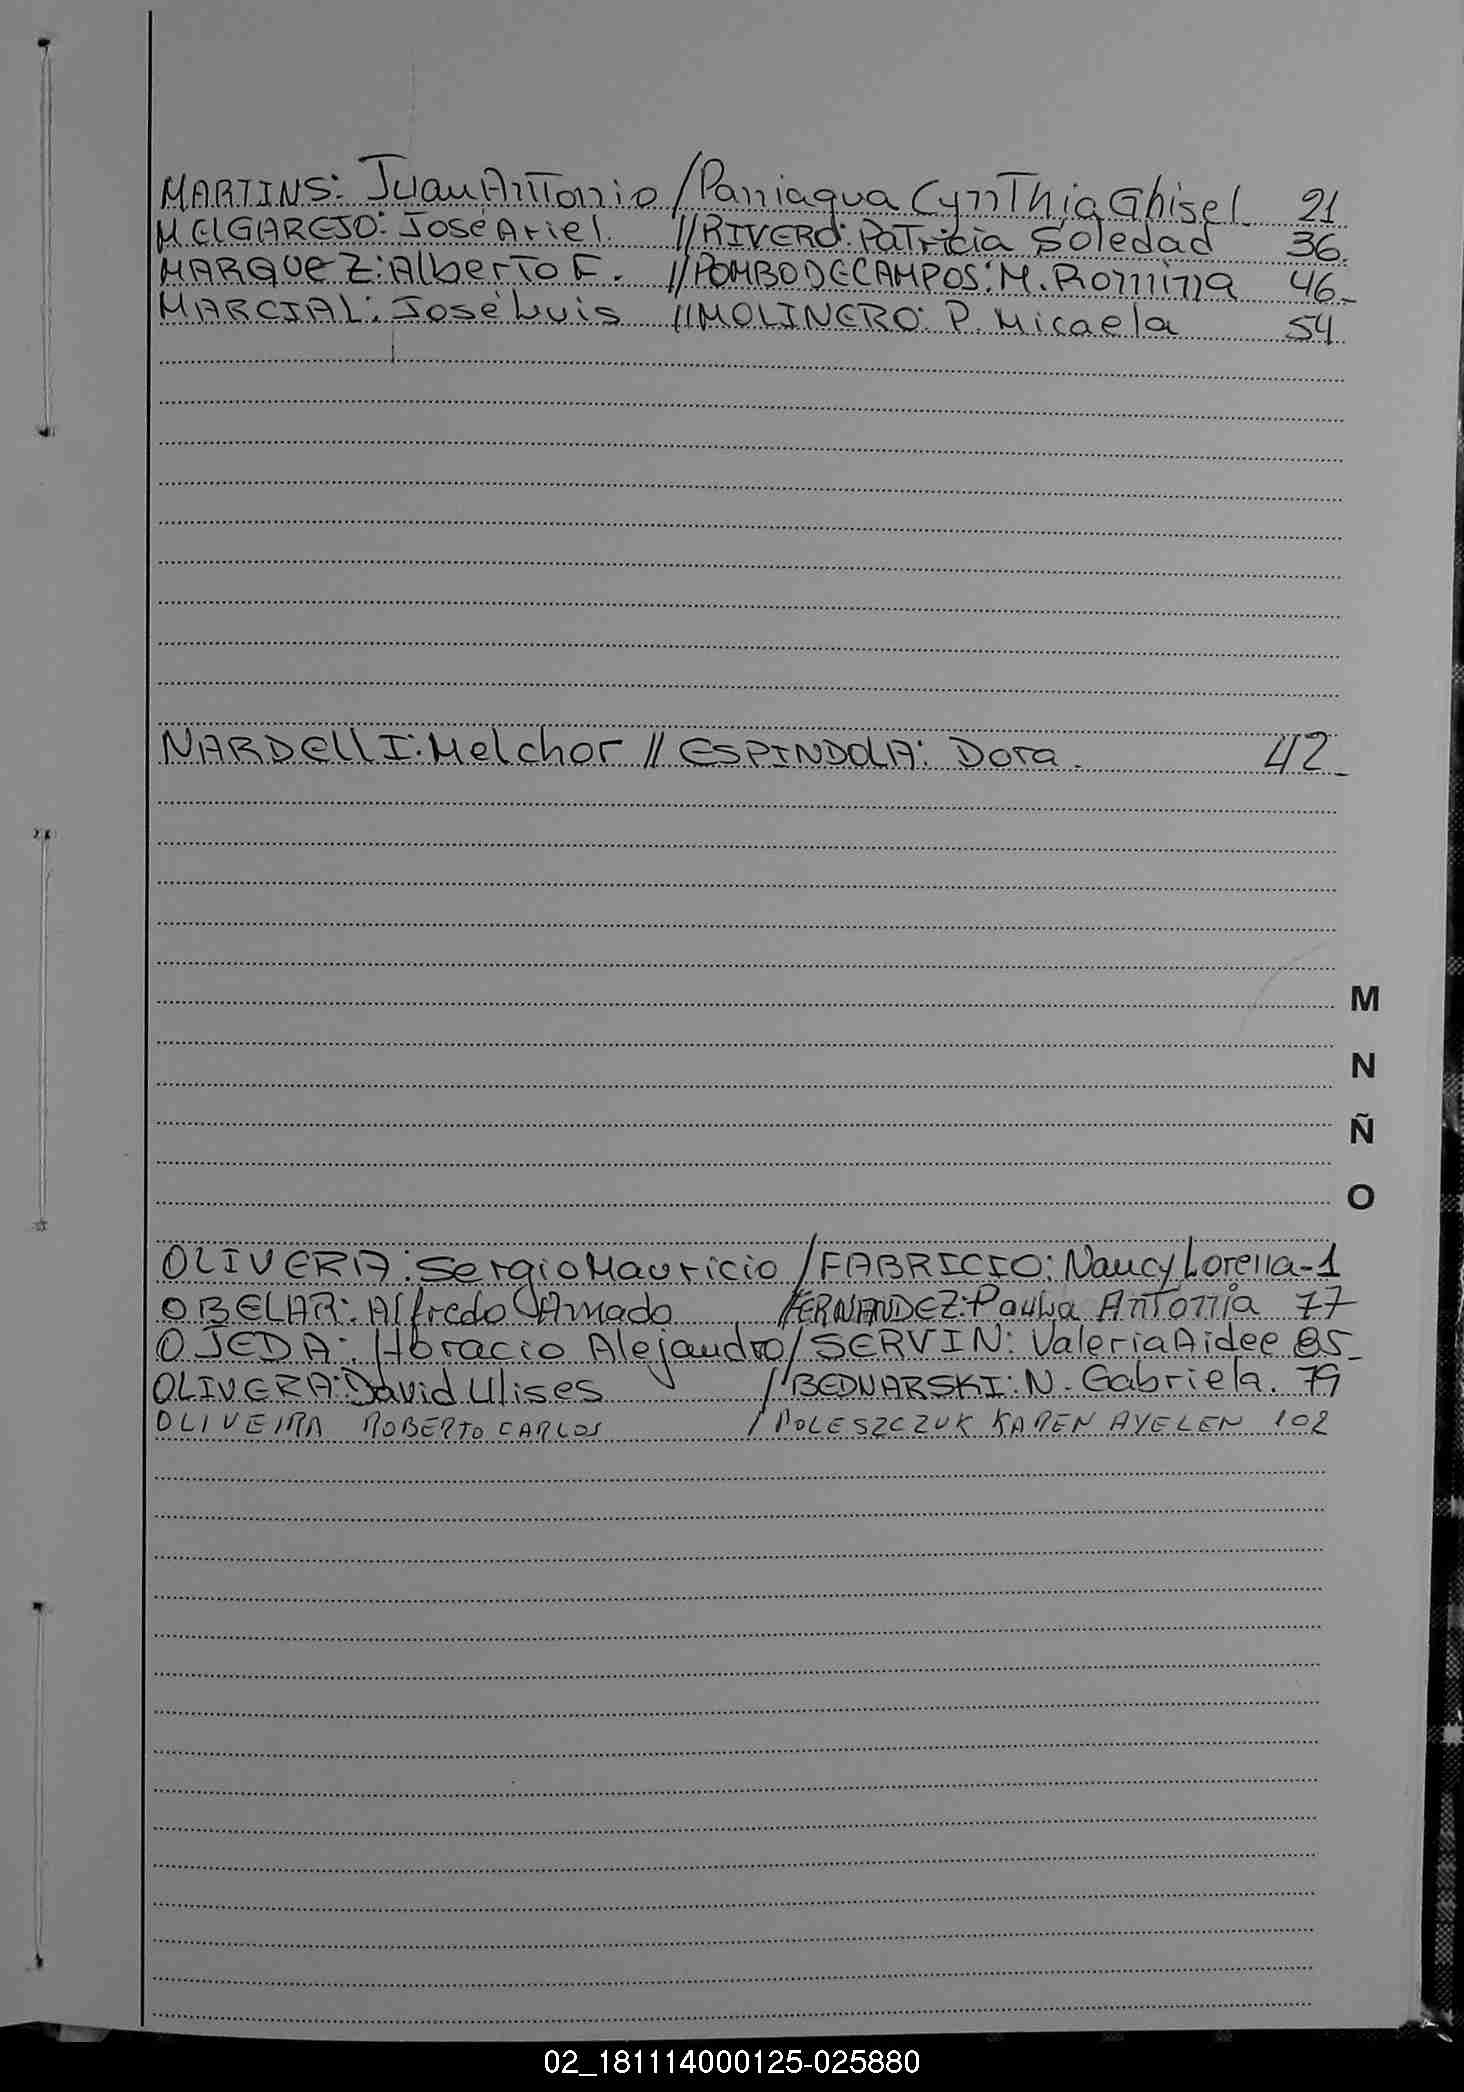 MARTINS: Juan Antonio / Paniagua Cynthia Ghisel 21
MELGAREJO: José Ariel. // RIVERO: Patricia Soledad 36.
MARQUEZ: Alberto F. // POMBO DE CAMPOS: M. Romina 46-
MARCIAL: José Luis // MOLINERO: P. Micaela 54
NARDELLI: Melchor // ESPINDOLA: Dora. 42-
M
N
Ñ
O
OLIVERA: Sergio Mauricio / FABRICIO: Nancy Lorena - 1
OBELAR: Alfredo Amado / FERNANDEZ: Antonia 77
OJEDA: Horacio Alejandro / SERVIN: Valeria Aidee 85-
OLIVERA: David Ulises / BEDNARSKI: N. Gabriela. 79
OLIVEIRA ROBERTO CARLOS / POLESZCZUK KAREN AYELEN 102
02_181114000125-025880